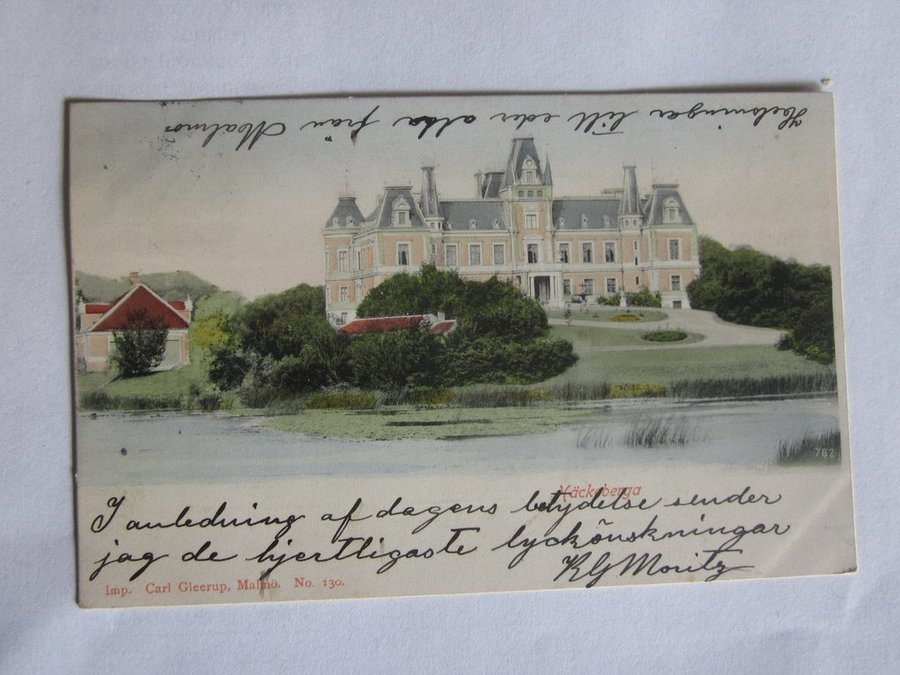 Helsningar till eder alla från Malmö.
782
Häckeberga
I anledning af dagens betydelse sender
jag de hjertligaste lyckönskningar
KG Moritz
Imp. Carl Gleerup, Malmö. No. 130.